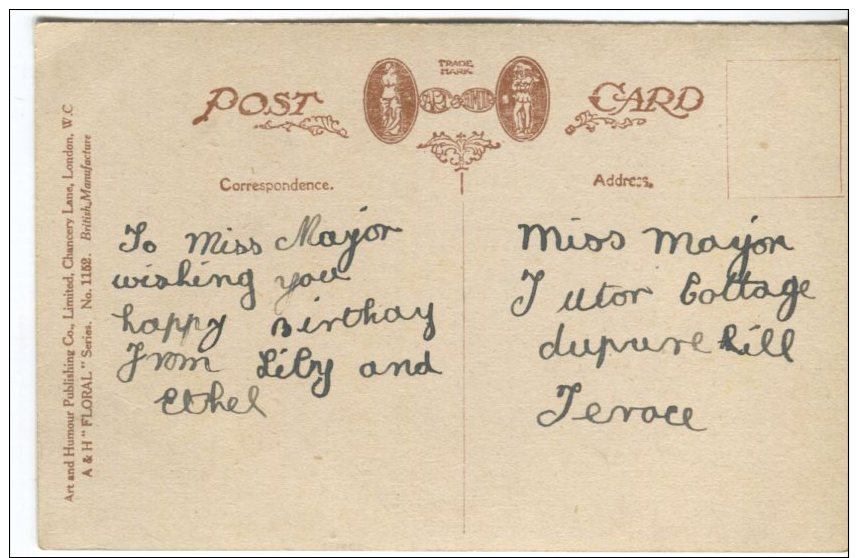 Art and Humour Publishing Co., Limited, Chancery Lane, London, W.C
A & H "FLORAL" Series. No. 1152. British Manufacture
POST CARD
TRADE
MARK
ART & HUMOUR
Correspondence.
To Miss Major
wishing you
happy Birthay
From Lily and
Ethel
Address.
Miss Mayor
Tutor Cottage
dupure hill
Terace